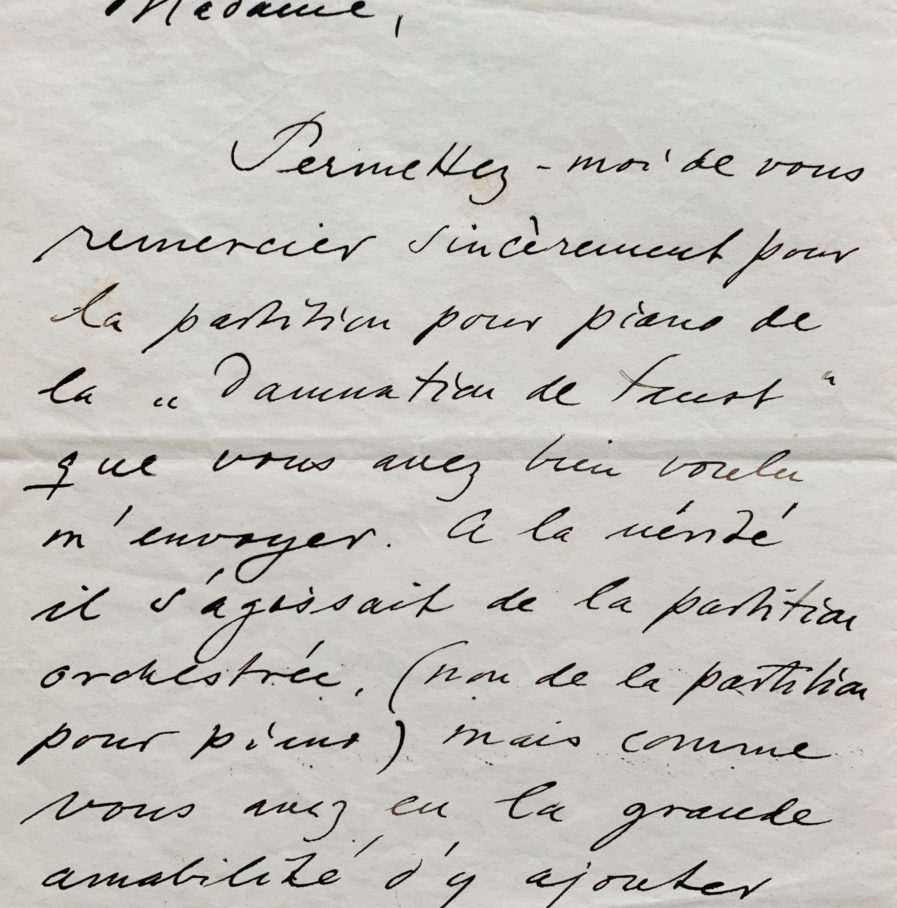 Madame,
Permettez-moi de vous
remercier sincèrement pour
la partition pour piano de
la „Damnation de Faust“
que vous avez bien voulu
m'envoyer. A la vérité
il s'agissait de la partition
orchestrée, (non de la partition
pour piano) mais comme
vous avez eu la grande
amabilité d'y ajouter